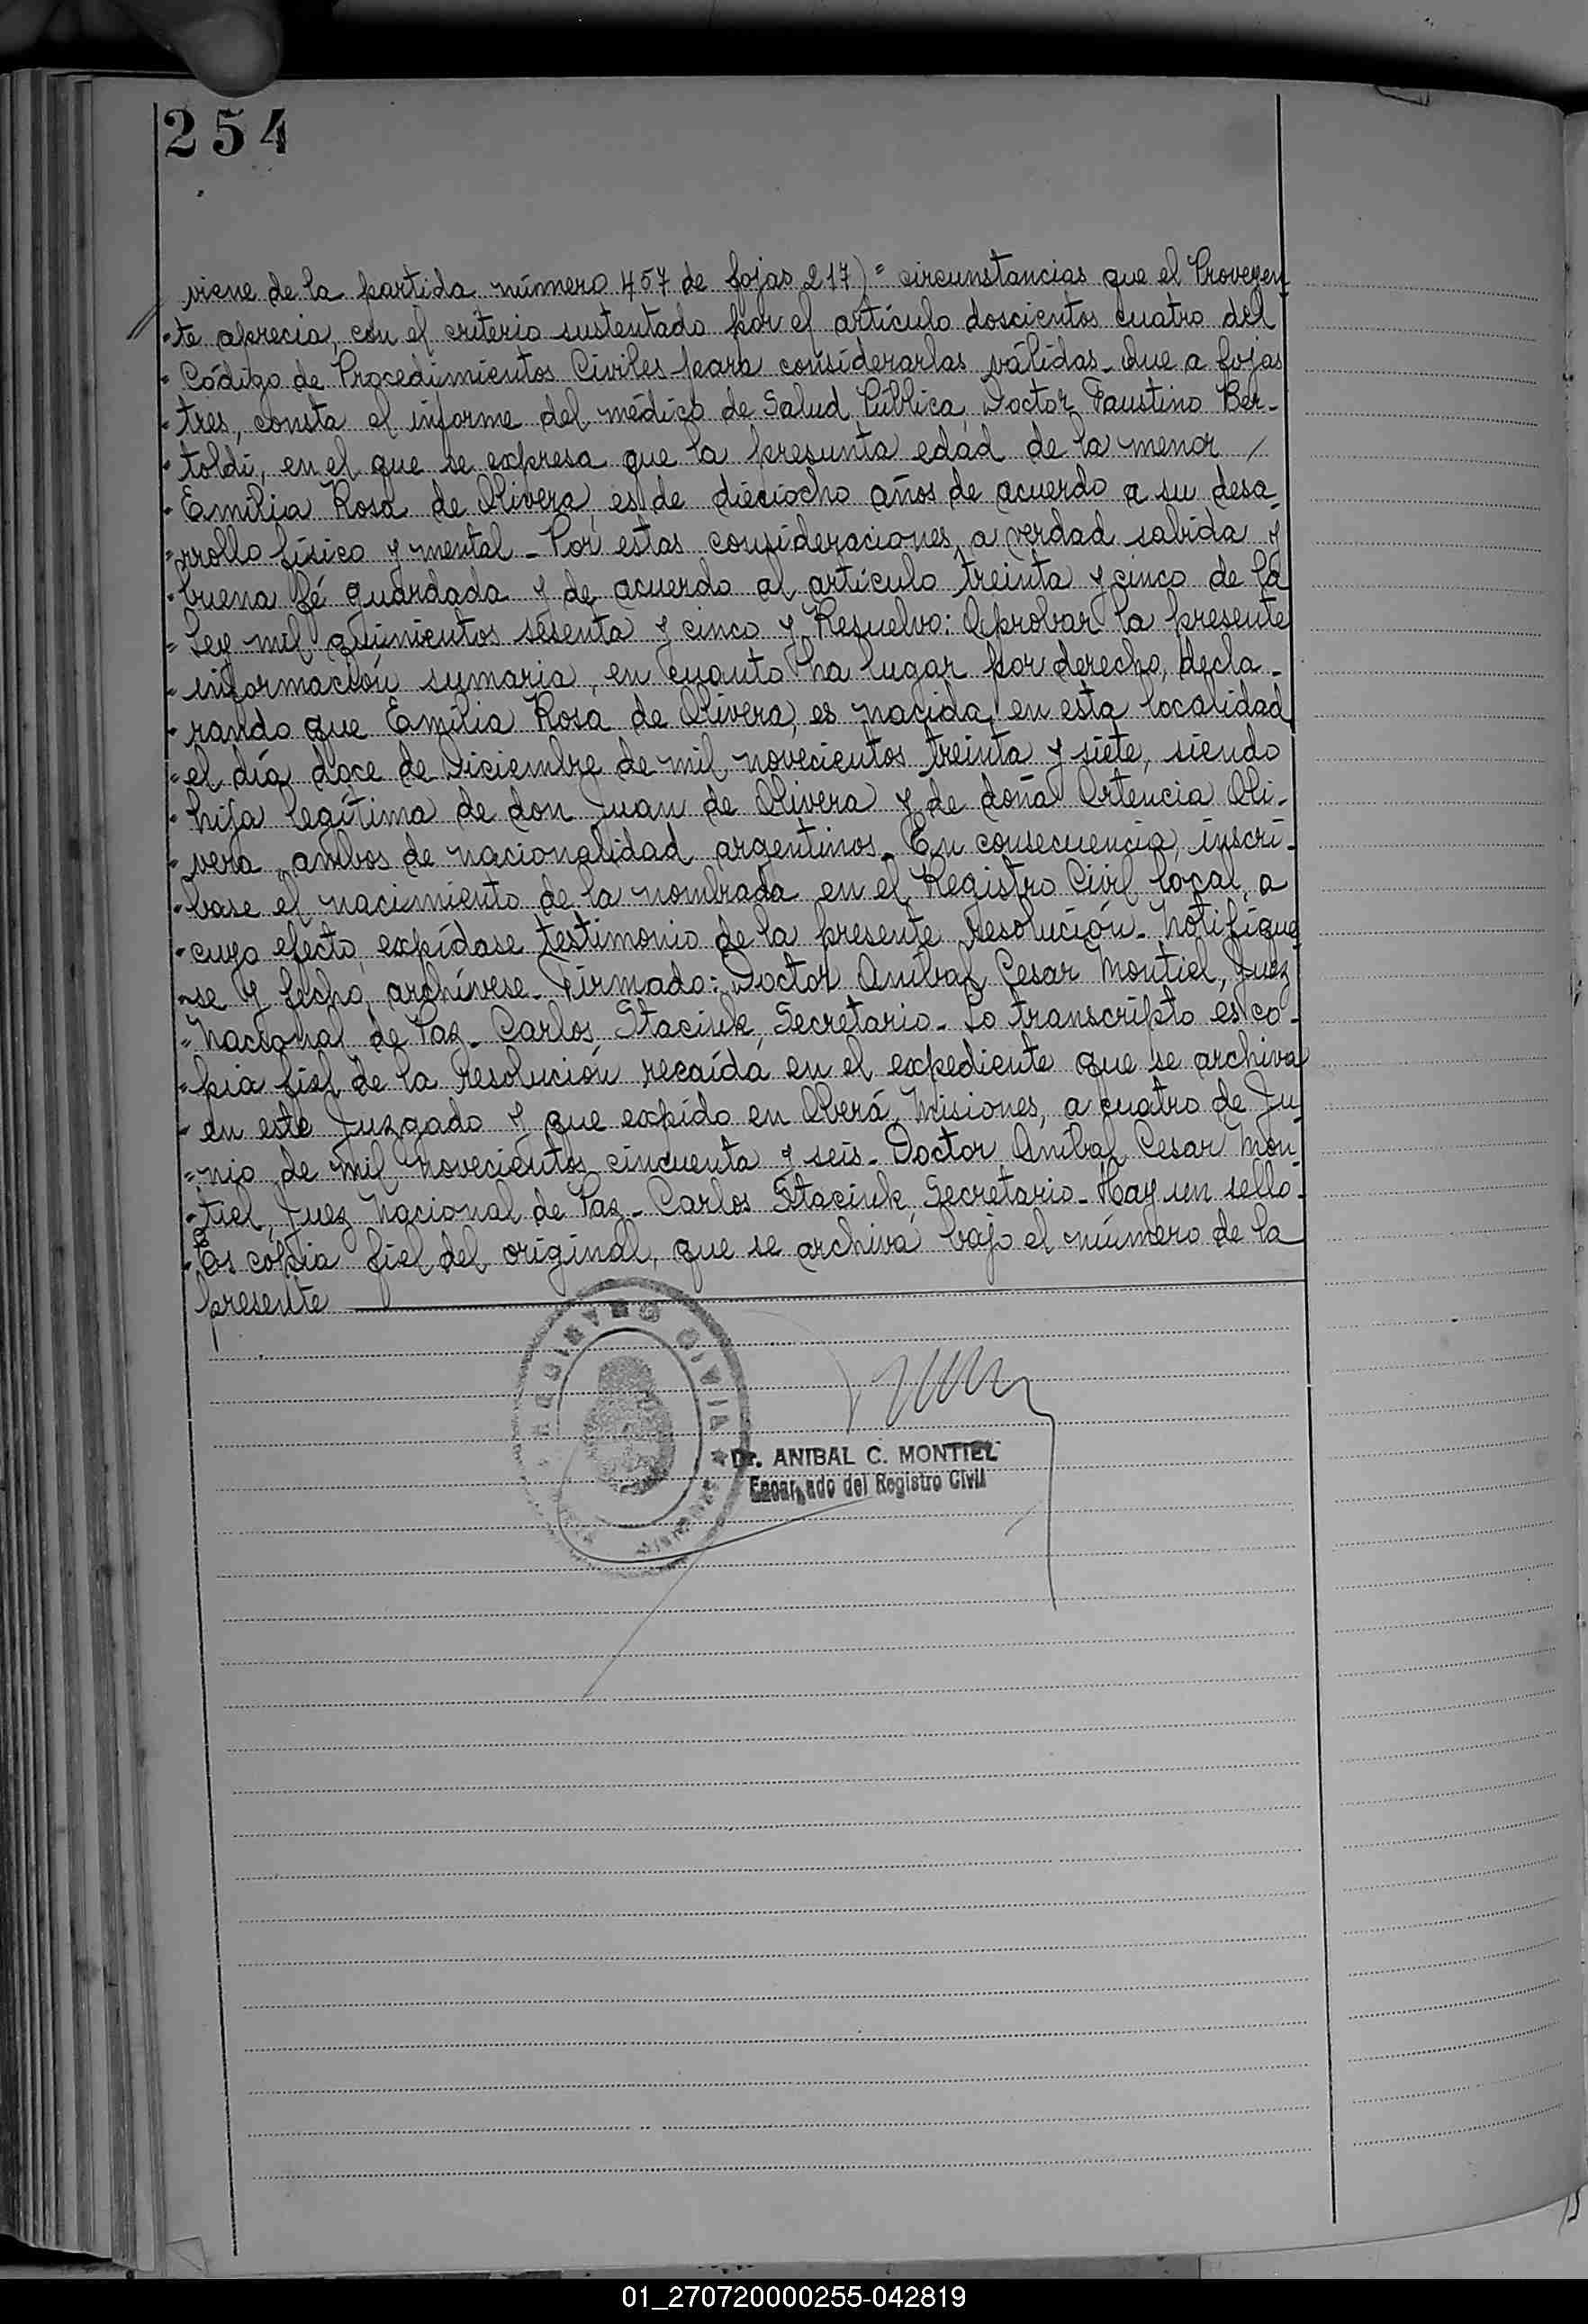 254
viene de la partida número 457 de fojas 217) " circunstancias que el Proveyen
" te aprecia, con el criterio sustentado por el artículo doscientos cuatro del
" Código de Procedimientos Civiles para considerarlas válidas_ Que a fojas
" tres, consta el informe del médico de Salud Pública, Doctor Faustino Ber-
" toldi, en el que se expresa que la presunta edad de la menor /
" Emilia Rosa de Olivera, es de dieciocho años de acuerdo a su desa-
" rrollo físico y mental_ Por estas consideraciones, a verdad sabida y
" buena fé guardada y de acuerdo al artículo treinta y cinco de la
" Ley mil quinientos sesenta y cinco y Resuelvo: Aprobar la presente
" información sumaria, en cuanto ha lugar por derecho, decla-
" rando que Emilia Rosa de Olivera, es nacida en esta localidad
" el día doce de Diciembre de mil novecientos treinta y siete, siendo
" hija legítima de don Juan de Olivera y de doña Ortencia Oli-
" vera, ambos de nacionalidad argentinos_ En consecuencia, inscrí-
" base el nacimiento de la nombrada en el Registro Civil local, a
" cuyo efecto, expídase testimonio de la presente resolución_ Notifíque
" se y fecho, archívese_ Firmado: Doctor Anibal Cesar Montiel, Juez
" Nacional de Paz_ Carlos Staciuk, Secretario_ Lo transcripto es co-
" pia fiel de la resolución recaída en el expediente que se archiva
" en este Juzgado y que expido en Oberá, Misiones, a cuatro de Ju
" nio de mil novecientos cincuenta y seis_ Doctor Anibal Cesar Mon-
" tiel, Juez Nacional de Paz_ Carlos Staciuk, Secretario_ Hay un sello_
" Es copia fiel del original, que se archiva bajo el número de la
presente
REGISTRO CIVIL
Dr. ANIBAL C. MONTIEL
Encargado del Registro Civil
01_270720000255-042819